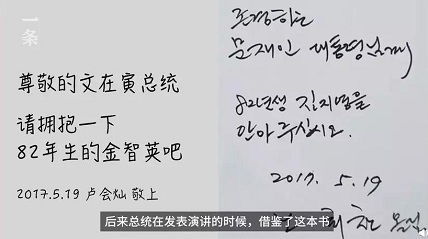 一条
尊敬的文在寅总统
请拥抱一下
82年生的金智英吧
2017.5.19 卢会灿 敬上
존경하는
문재인 대통령님께
82년생 김지영을
안아 주십시오.
2017. 5. 19
노회찬
后来总统在发表演讲的时候，借鉴了这本书